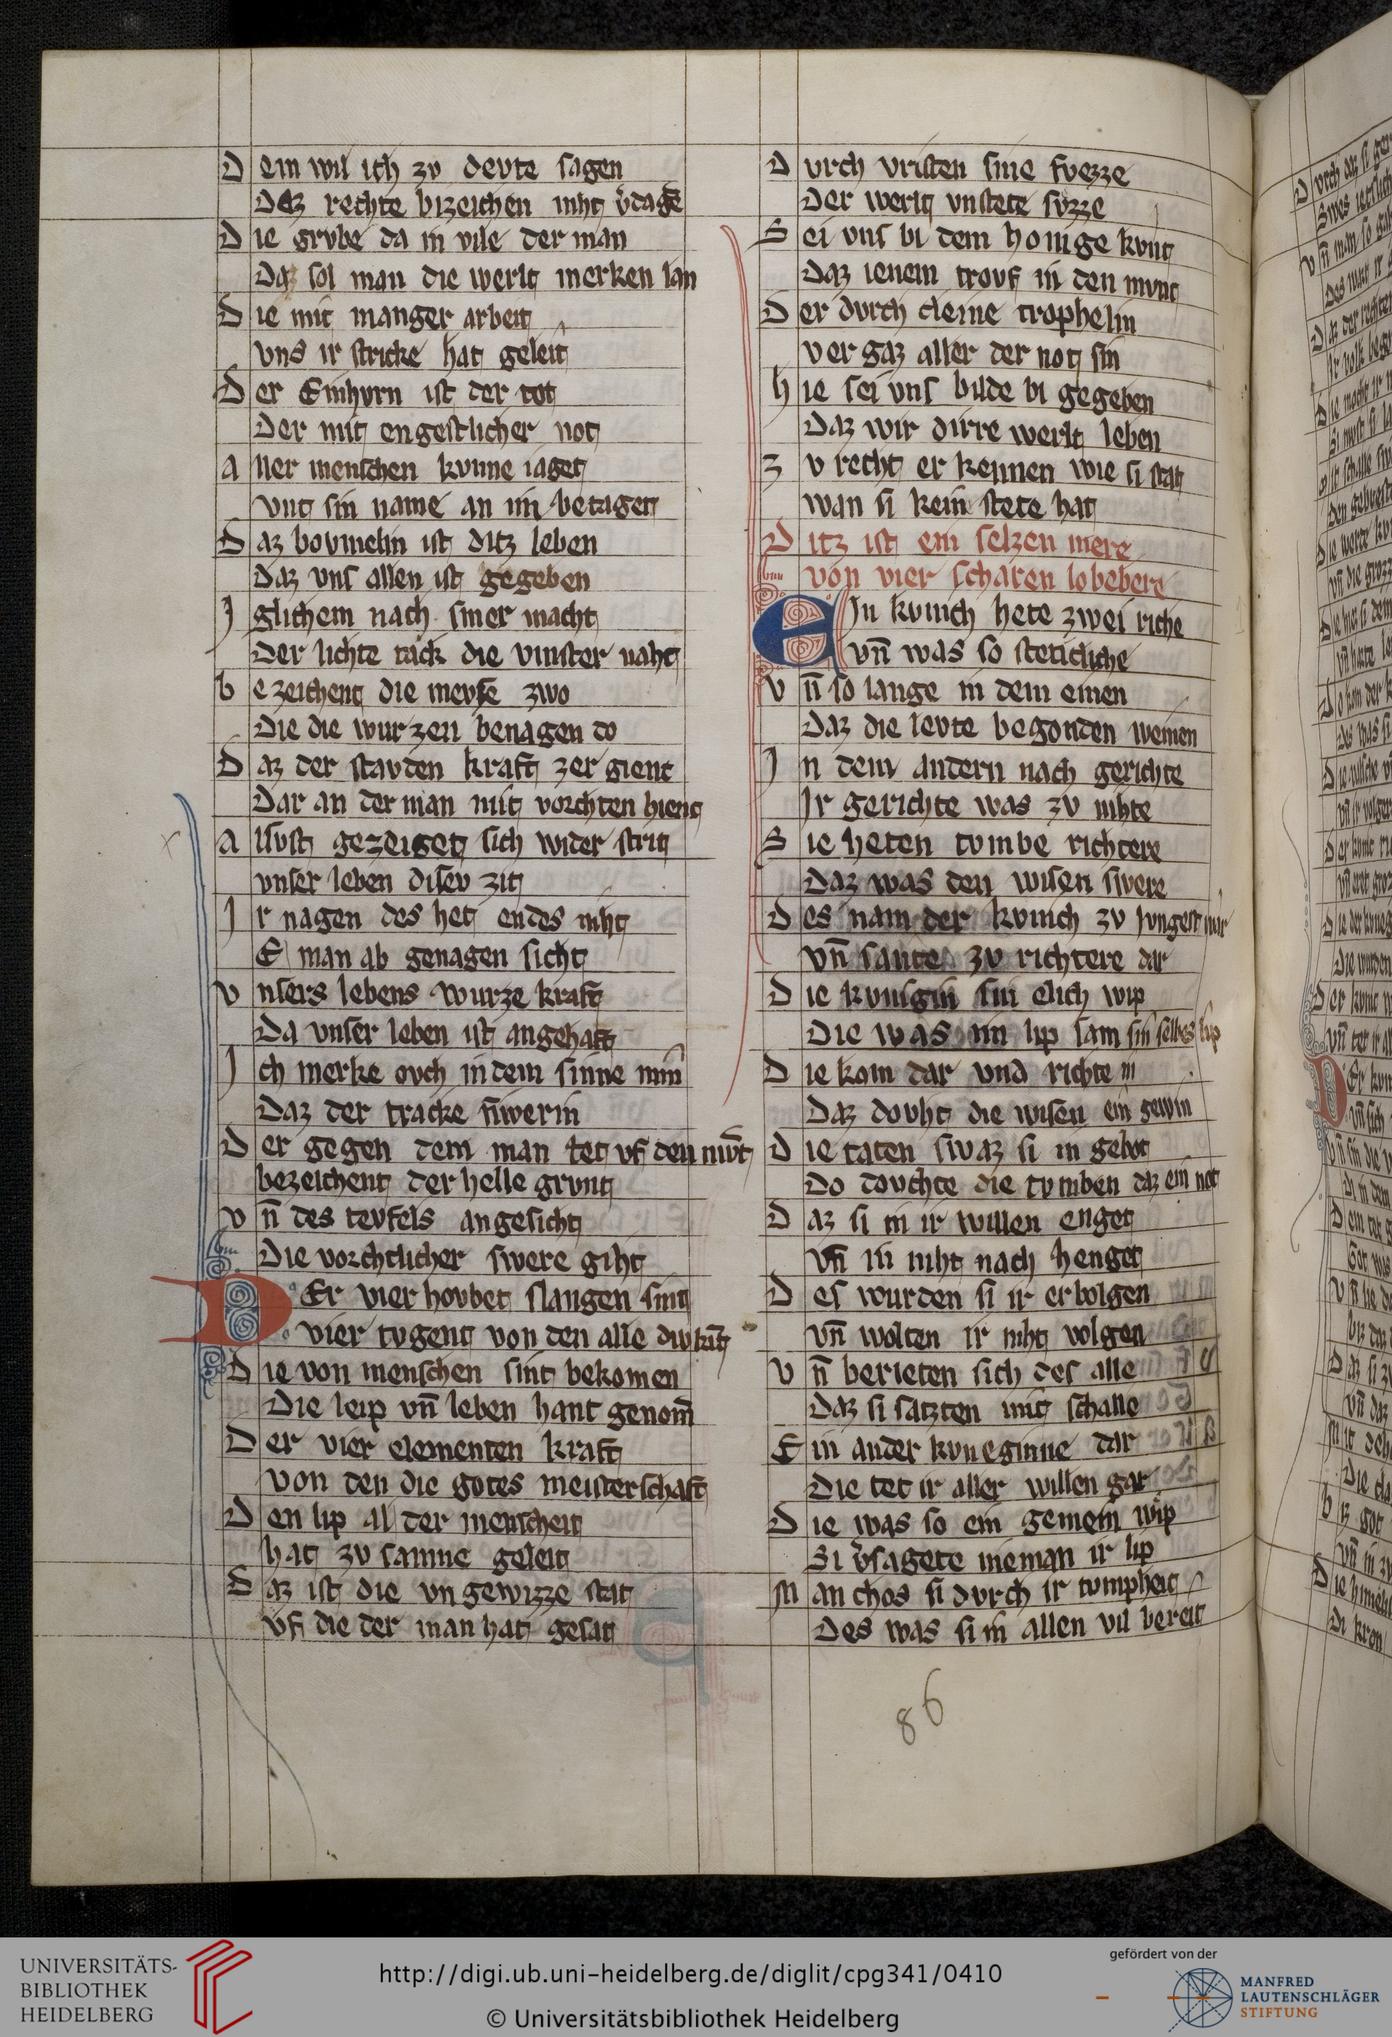 Dem wil ich zv devte sagen
Dez rechte bizeichen niht v̾dagē
Die grvbe da in vile der man
Daz sol man die werlt merken lan
Die mit manger arbeit
vns ir stricke hat geleit
Der Einhvrn ist der tot
Der mit engestlicher not
aller menschen kvnne iaget
vnt sin name an im betaget
Daz bovmelin ist ditz leben
Daz vns allen ist gegeben
Iglichem nach siner macht
Der lichte tack die vinster naht
bezeichent die mevse zwo
Die die wurzen benagen do
Daz der stavden kraft zergient
Dar an der man mit vorchten hienc
alsvst gezeiget sich wider strit
vnser leben disev zit
Ir nagen des het endes niht
E man ab genagen sicht
vnsers lebens wurze kraft
Da vnser leben ist angehaft
Ich merke ovch in dem sinne min
Daz der tracke
Der gegen dem man tet vf den mvt
bezeichent der helle grvnt
vn̄ des tevfels angesicht
Die vorchtlicher swere giht
Der vier hovbet slangen sint
vier tvgent von den alle div kint
Die von menschen sint bekomen
Die leip vn̄ leben hant genom̄
Der vier elementen kraft
von den die gotes meisterschaft
Den lip al der menscheit
hat zv samne geleit
Daz ist die vngewizze stat
vf die der man hat gesat
Dvrch vristen sine fvezze
Der werlt vnstete svzze
Sei vns bi dem honige kvnt
Daz ienem trovf in den mvnt
Der dvrch cleine trophelin
vergaz aller der not sin
hie sei vns bilde bi gegeben
Daz wir dirre werlt leben
zv recht erkennen wie si stat
wan si kein stete hat
Ditz ist ein selzen mere
von vier scharen lobebere
Ein kvnich hete zwei riche
vn̄ was so steticliche
vn̄ so lange in dem einen
Daz die levte begonden weinen
In dem andern nach gerichte
Ir gerichte was zv nihte
Sie heten tvmbe richtere
Daz was den wisen swere
Des nam der kvnich zv Jvngest war
vn̄ sante zv richtere dar
Die kvnigin sin elich wip
Die was im lip sam sin selbes lip
Die kom dar vnd richte in
Daz dovht die wisen ein gewin
Die taten swaz si in gebot
Do dovchte die tvmben daz ein not
Daz si in ir willen enget
vn̄ in niht nach henget
Des wurden si ir erbolgen
vn̄ wolten ir niht volgen
vn̄ berieten sich des alle
Daz si satzten mit schalle
Ein ander kvneginne dar
Die tet ir aller willen gar
Die was so ein gemein wip
Si v̾sagete nieman ir lip
Man chos si dvrch ir tvmpheit
Des was si in allen vil bereit
86
UNIVERSITÄTS-
BIBLIOTHEK
HEIDELBERG
http://digi.ub.uni-heidelberg.de/diglit/cpg341/0410
© Universitätsbibliothek Heidelberg
gefördert von der
MANFRED
LAUTENSCHLÄGER
STIFTUNG